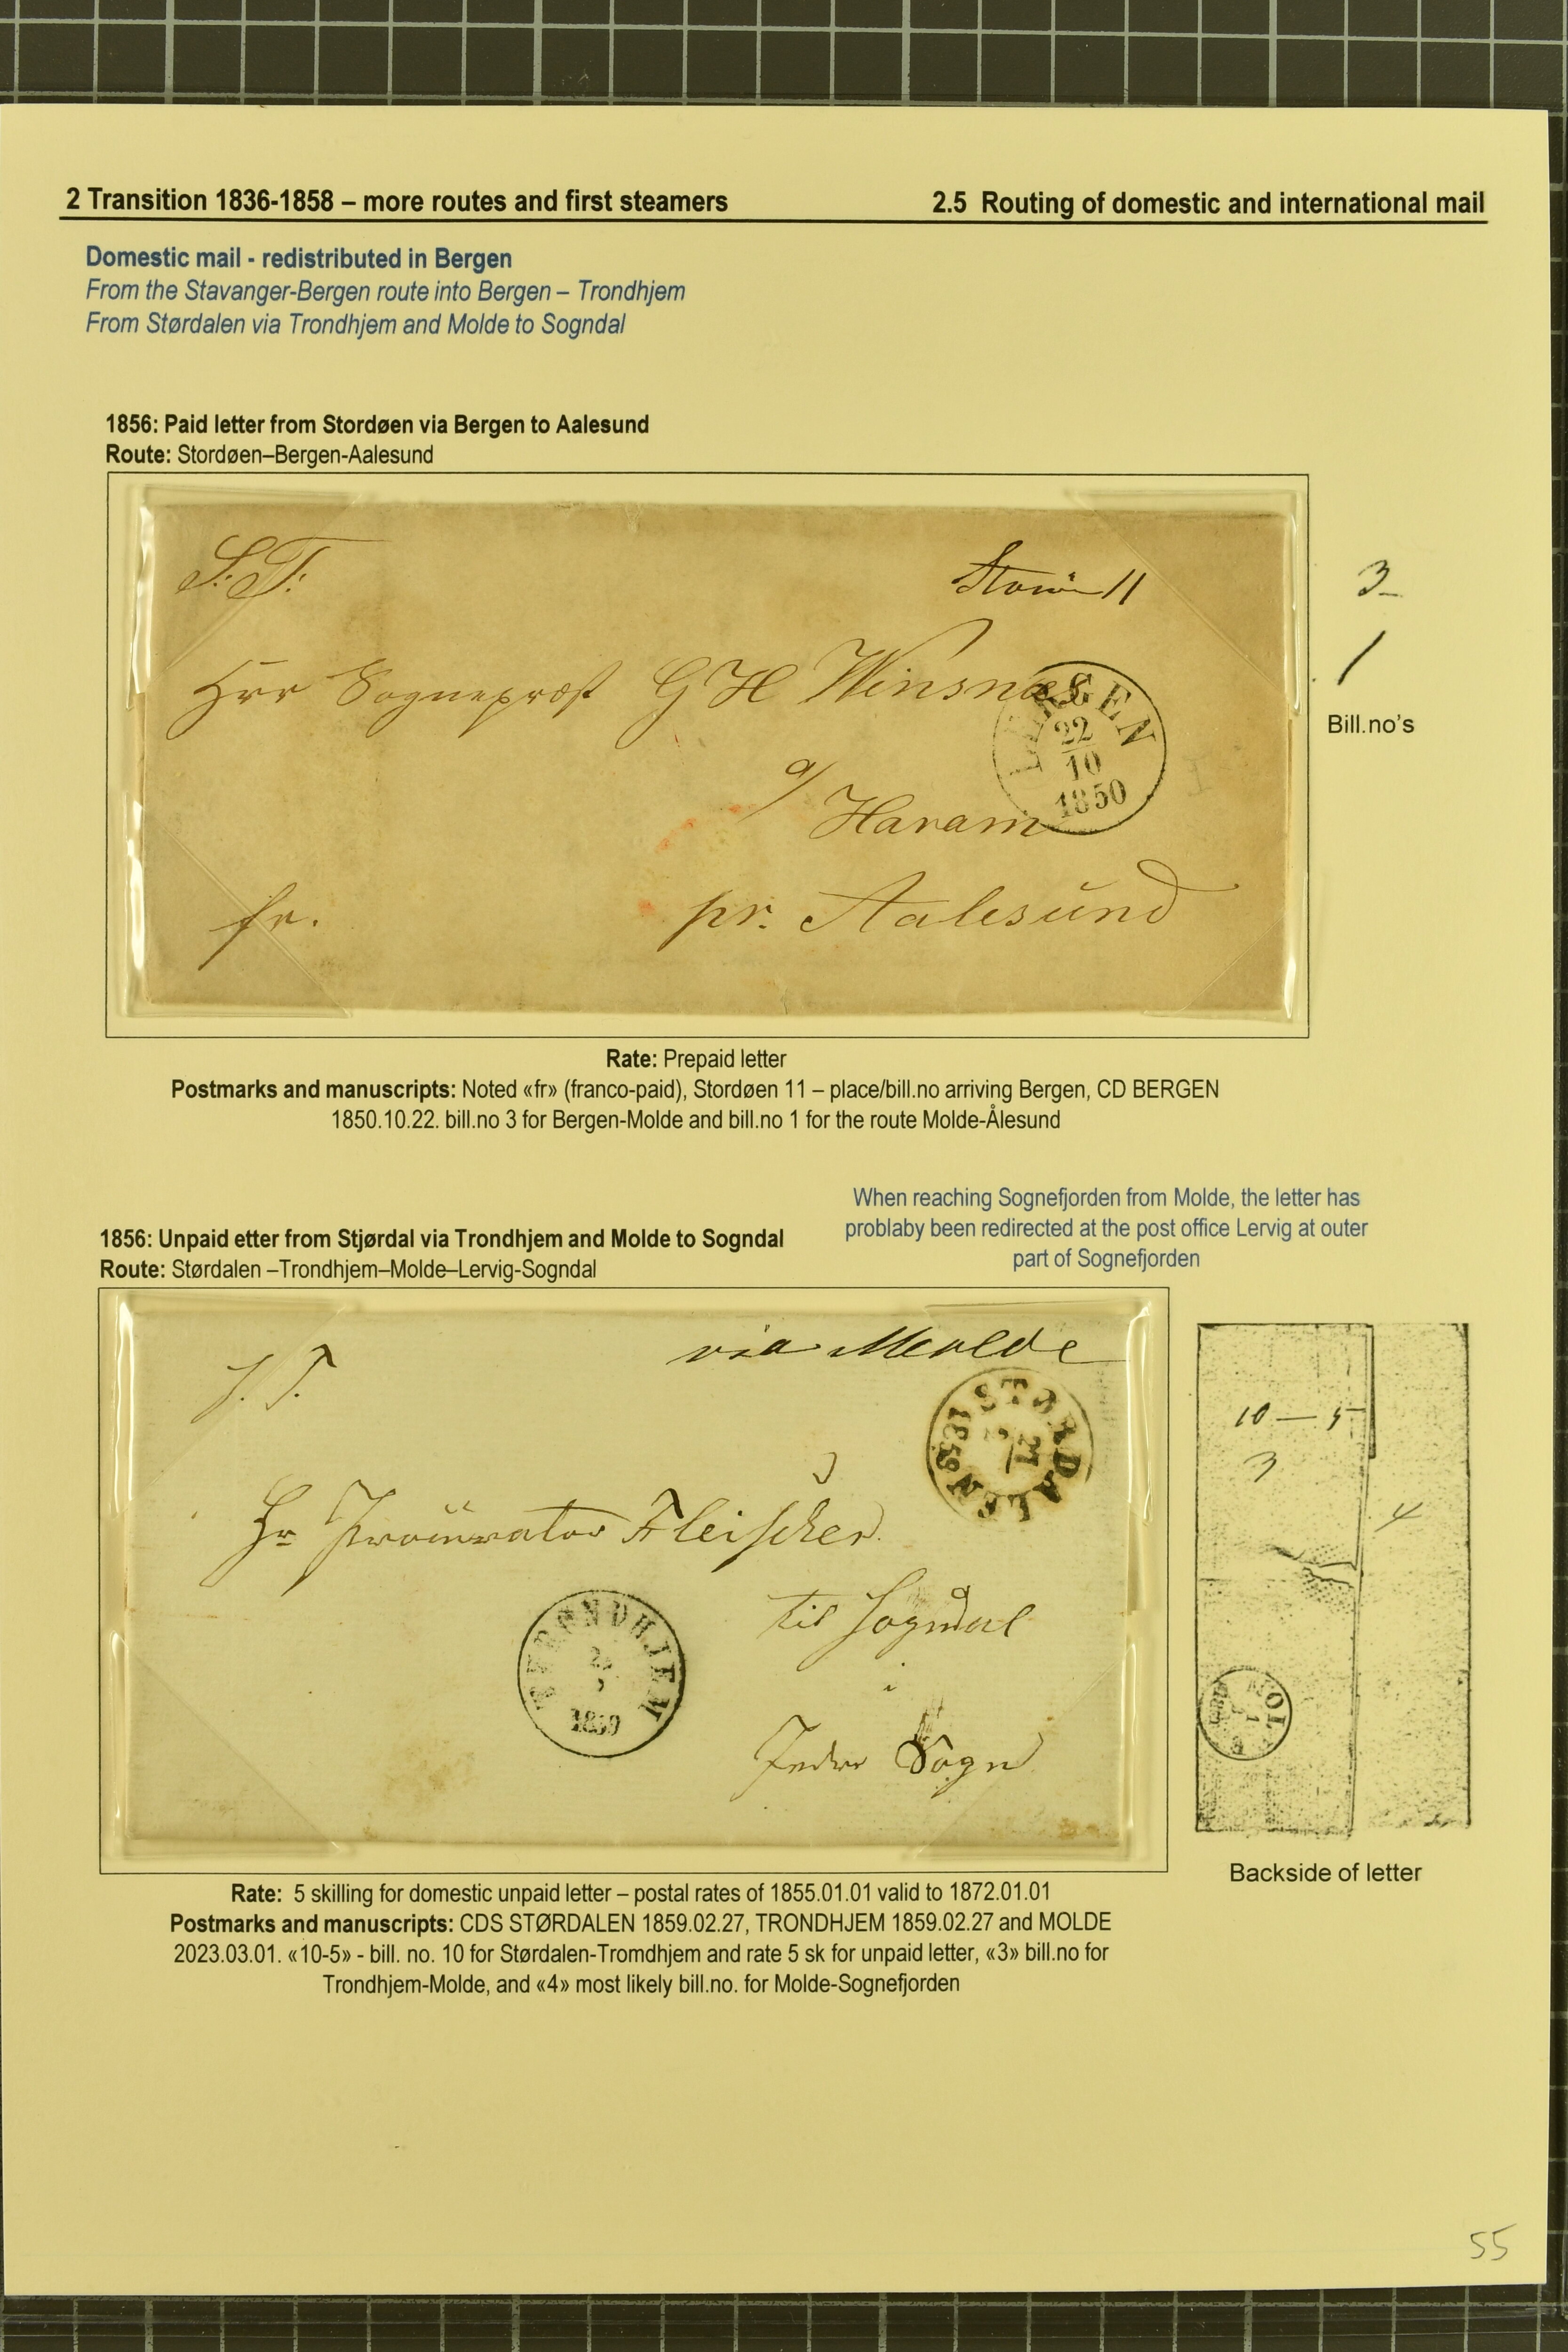 2 Transition 1836-1858 – more routes and first steamers
2.5 Routing of domestic and international mail
Domestic mail - redistributed in Bergen
From the Stavanger-Bergen route into Bergen – Trondhjem
From Størdalen via Trondhjem and Molde to Sogndal
1856: Paid letter from Stordøen via Bergen to Aalesund
Route: Stordøen–Bergen-Aalesund
S: T:
11
Herr Sognepræst G H Winsnæs
BERGEN
22
10
1850
a/ Haram
fr.
pr. Aalesund
3
1
Bill.no's
Rate: Prepaid letter
Postmarks and manuscripts: Noted «fr» (franco-paid), Stordøen 11 – place/bill.no arriving Bergen, CD BERGEN
1850.10.22. bill.no 3 for Bergen-Molde and bill.no 1 for the route Molde-Ålesund
When reaching Sognefjorden from Molde, the letter has
problaby been redirected at the post office Lervig at outer
part of Sognefjorden
1856: Unpaid etter from Stjørdal via Trondhjem and Molde to Sogndal
Route: Størdalen –Trondhjem–Molde–Lervig-Sogndal
via Molde
S. T.
STØRDALEN
27
2
1859
Hr Procurator Fleischer
til Sogndal
i
Indre Sogn
TRONDHJEM
1859
10 — 5
3
4
MOL
Backside of letter
Rate: 5 skilling for domestic unpaid letter – postal rates of 1855.01.01 valid to 1872.01.01
Postmarks and manuscripts: CDS STØRDALEN 1859.02.27, TRONDHJEM 1859.02.27 and MOLDE
2023.03.01. «10-5» - bill. no. 10 for Størdalen-Tromdhjem and rate 5 sk for unpaid letter, «3» bill.no for
Trondhjem-Molde, and «4» most likely bill.no. for Molde-Sognefjorden
55